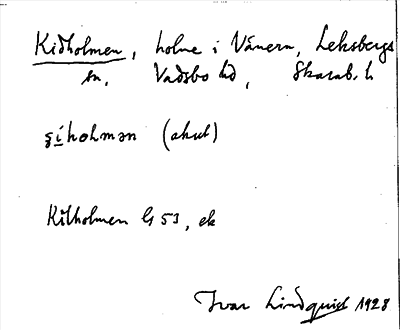 Kidholmen, holme i Vänern, Leksbergs
sn, Vadsbo hd, Skarab. l.
ʂíholmən (akut)
Kilholmen G 53, ek
Ivar Lindquist 1928